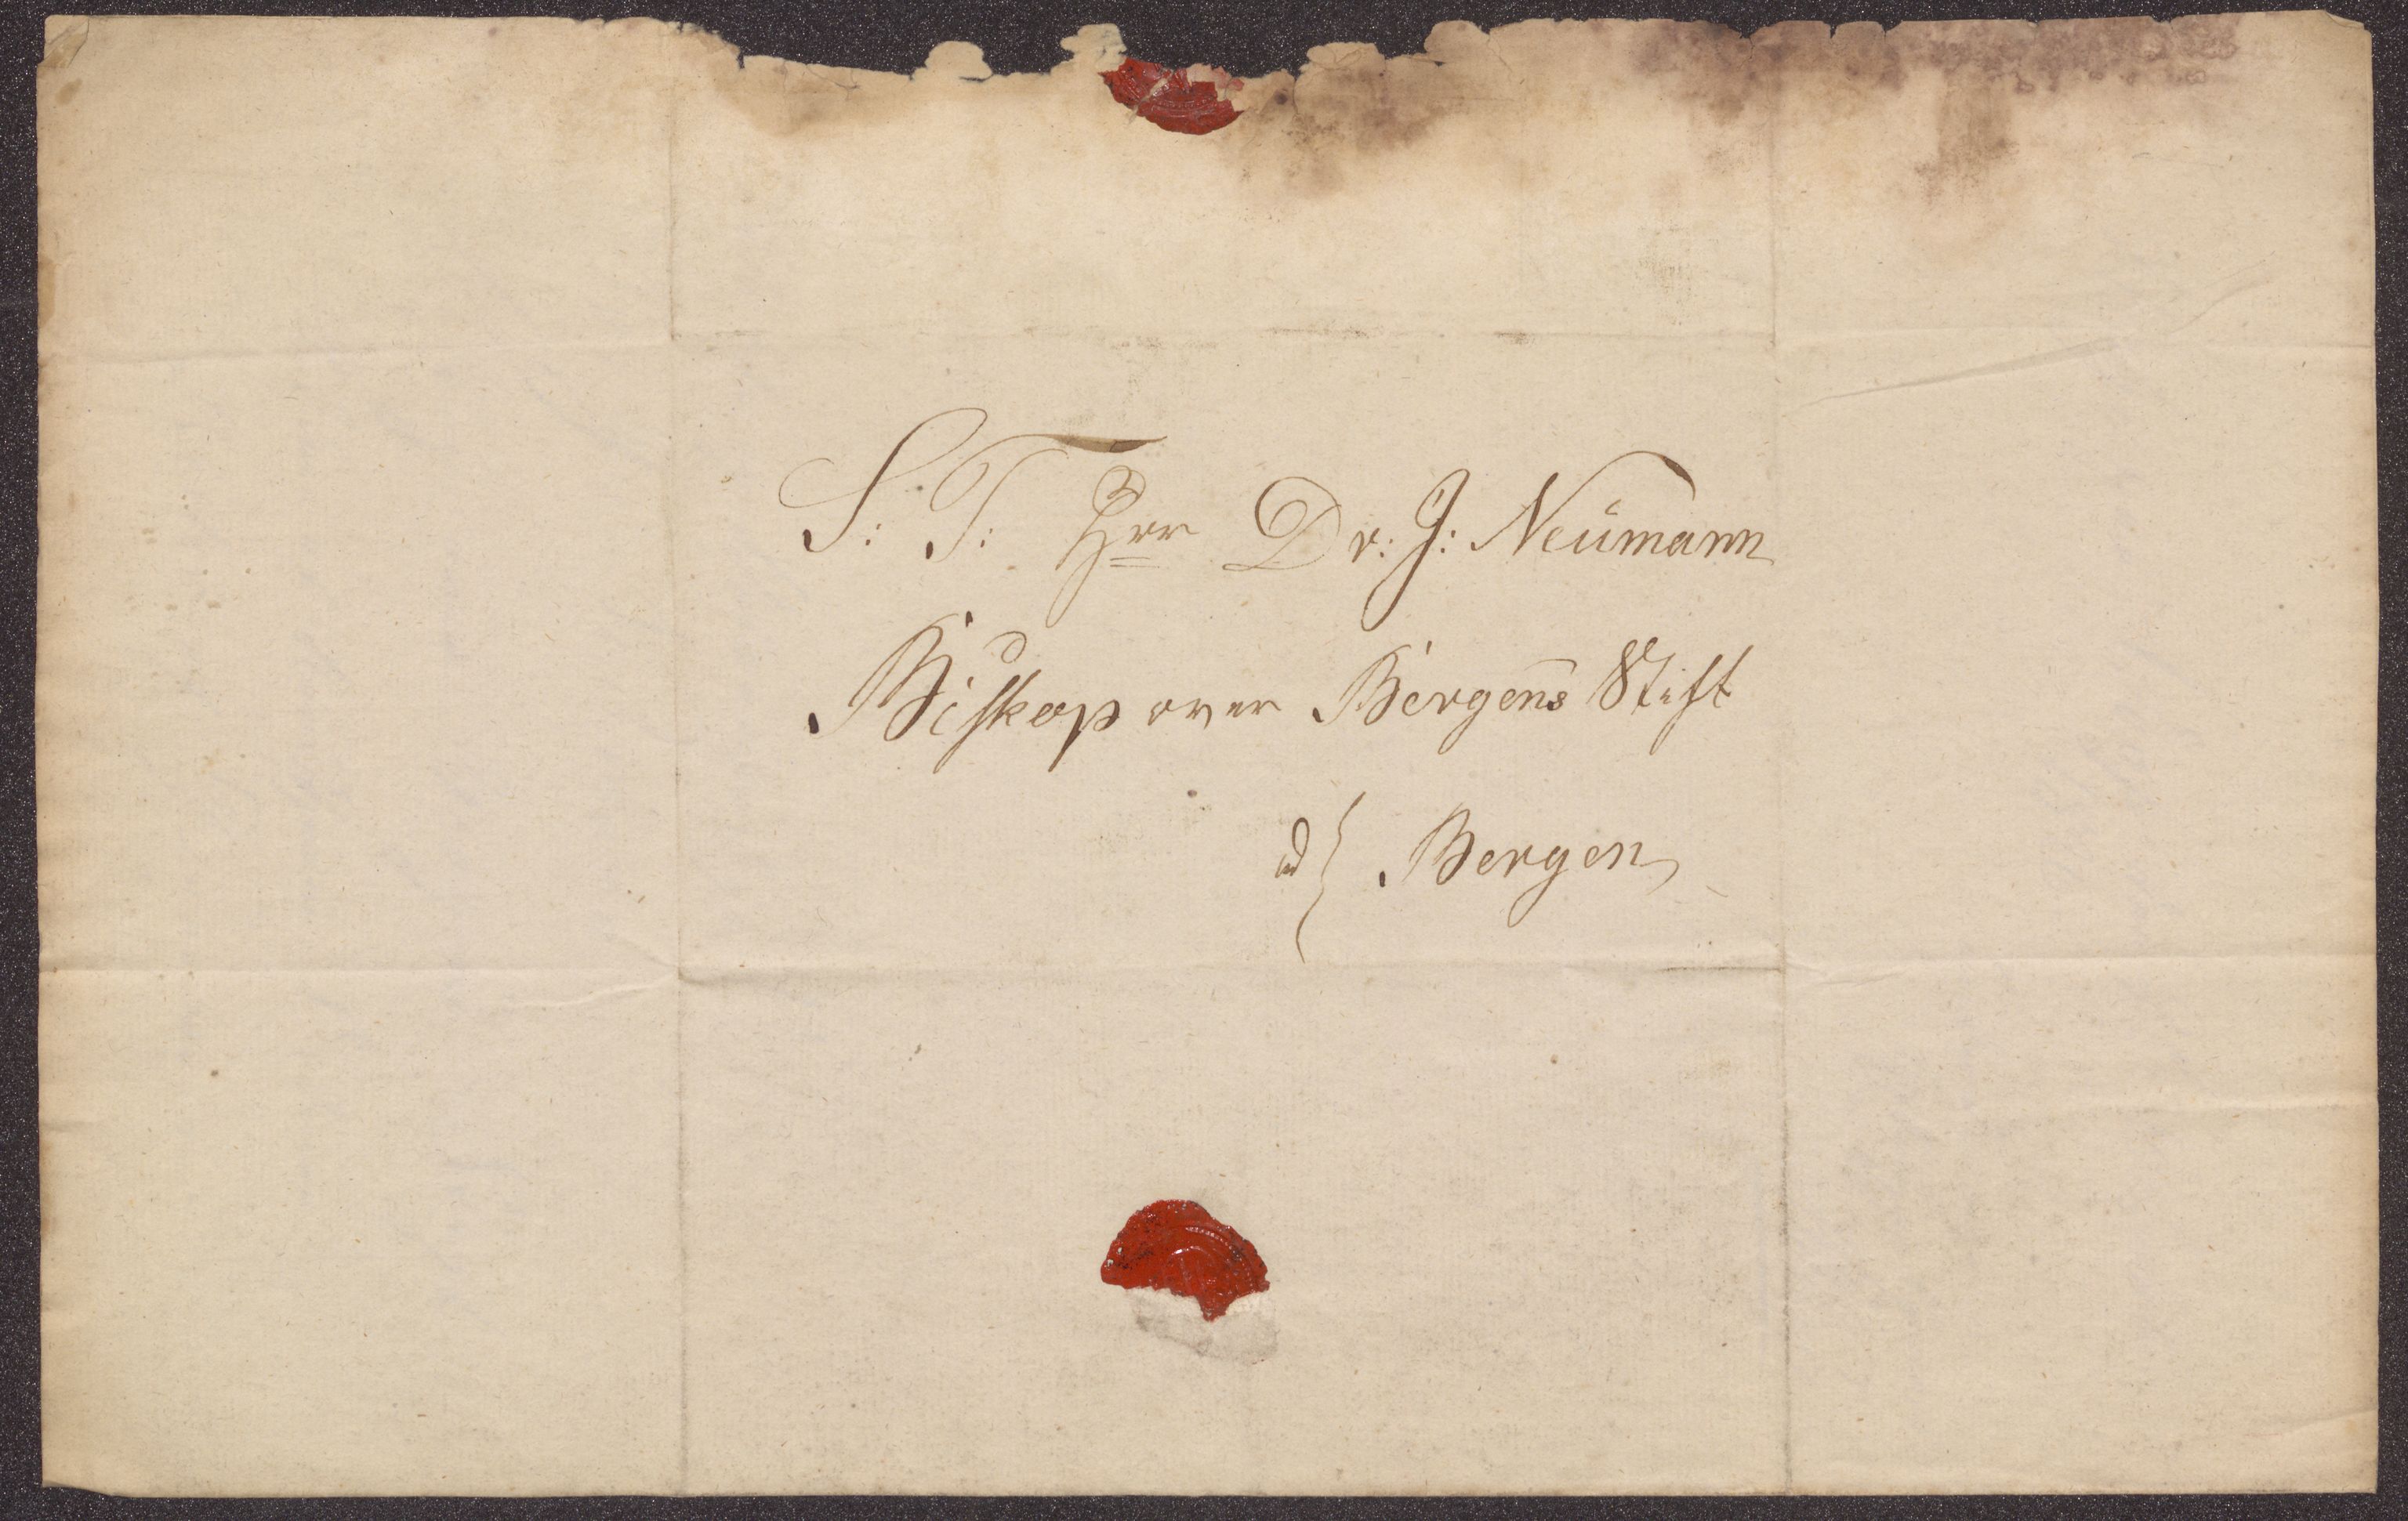 S: T: Hrr Dr: J: Neümann
Biskop over Bergens Stift
ad } Bergen